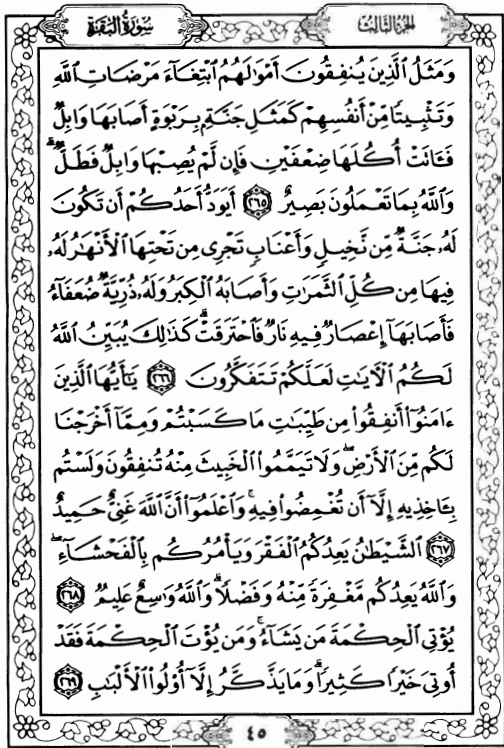 الجزء الثالث سورة البقرة
وَمَثَلُ ٱلَّذِينَ يُنفِقُونَ أَمْوَٰلَهُمُ ٱبْتِغَآءَ مَرْضَاتِ ٱللَّهِ
وَتَثْبِيتًا مِّنْ أَنفُسِهِمْ كَمَثَلِ جَنَّةٍۭ بِرَبْوَةٍ أَصَابَهَا وَابِلٌ
فَـَٔاتَتْ أُكُلَهَا ضِعْفَيْنِ فَإِن لَّمْ يُصِبْهَا وَابِلٌ فَطَلٌّ ۗ
وَٱللَّهُ بِمَا تَعْمَلُونَ بَصِيرٌ ٢٦٥ أَيَوَدُّ أَحَدُكُمْ أَن تَكُونَ
لَهُۥ جَنَّةٌ مِّن نَّخِيلٍ وَأَعْنَابٍ تَجْرِى مِن تَحْتِهَا ٱلْأَنْهَٰرُ لَهُۥ
فِيهَا مِن كُلِّ ٱلثَّمَرَٰتِ وَأَصَابَهُ ٱلْكِبَرُ وَلَهُۥ ذُرِّيَّةٌ ضُعَفَآءُ
فَأَصَابَهَآ إِعْصَارٌ فِيهِ نَارٌ فَٱحْتَرَقَتْ ۗ كَذَٰلِكَ يُبَيِّنُ ٱللَّهُ
لَكُمُ ٱلْـَٔايَٰتِ لَعَلَّكُمْ تَتَفَكَّرُونَ ٢٦٦ يَٰٓأَيُّهَا ٱلَّذِينَ
ءَامَنُوٓا۟ أَنفِقُوا۟ مِن طَيِّبَٰتِ مَا كَسَبْتُمْ وَمِمَّآ أَخْرَجْنَا
لَكُم مِّنَ ٱلْأَرْضِ ۖ وَلَا تَيَمَّمُوا۟ ٱلْخَبِيثَ مِنْهُ تُنفِقُونَ وَلَسْتُم
بِـَٔاخِذِيهِ إِلَّآ أَن تُغْمِضُوا۟ فِيهِ ۚ وَٱعْلَمُوٓا۟ أَنَّ ٱللَّهَ غَنِىٌّ حَمِيدٌ
٢٦٧ ٱلشَّيْطَٰنُ يَعِدُكُمُ ٱلْفَقْرَ وَيَأْمُرُكُم بِٱلْفَحْشَآءِ ۖ
وَٱللَّهُ يَعِدُكُم مَّغْفِرَةً مِّنْهُ وَفَضْلًا ۗ وَٱللَّهُ وَٰسِعٌ عَلِيمٌ ٢٦٨
يُؤْتِى ٱلْحِكْمَةَ مَن يَشَآءُ ۚ وَمَن يُؤْتَ ٱلْحِكْمَةَ فَقَدْ
أُوتِىَ خَيْرًا كَثِيرًا ۗ وَمَا يَذَّكَّرُ إِلَّآ أُو۟لُوا۟ ٱلْأَلْبَٰبِ ٢٦٩
٤٥